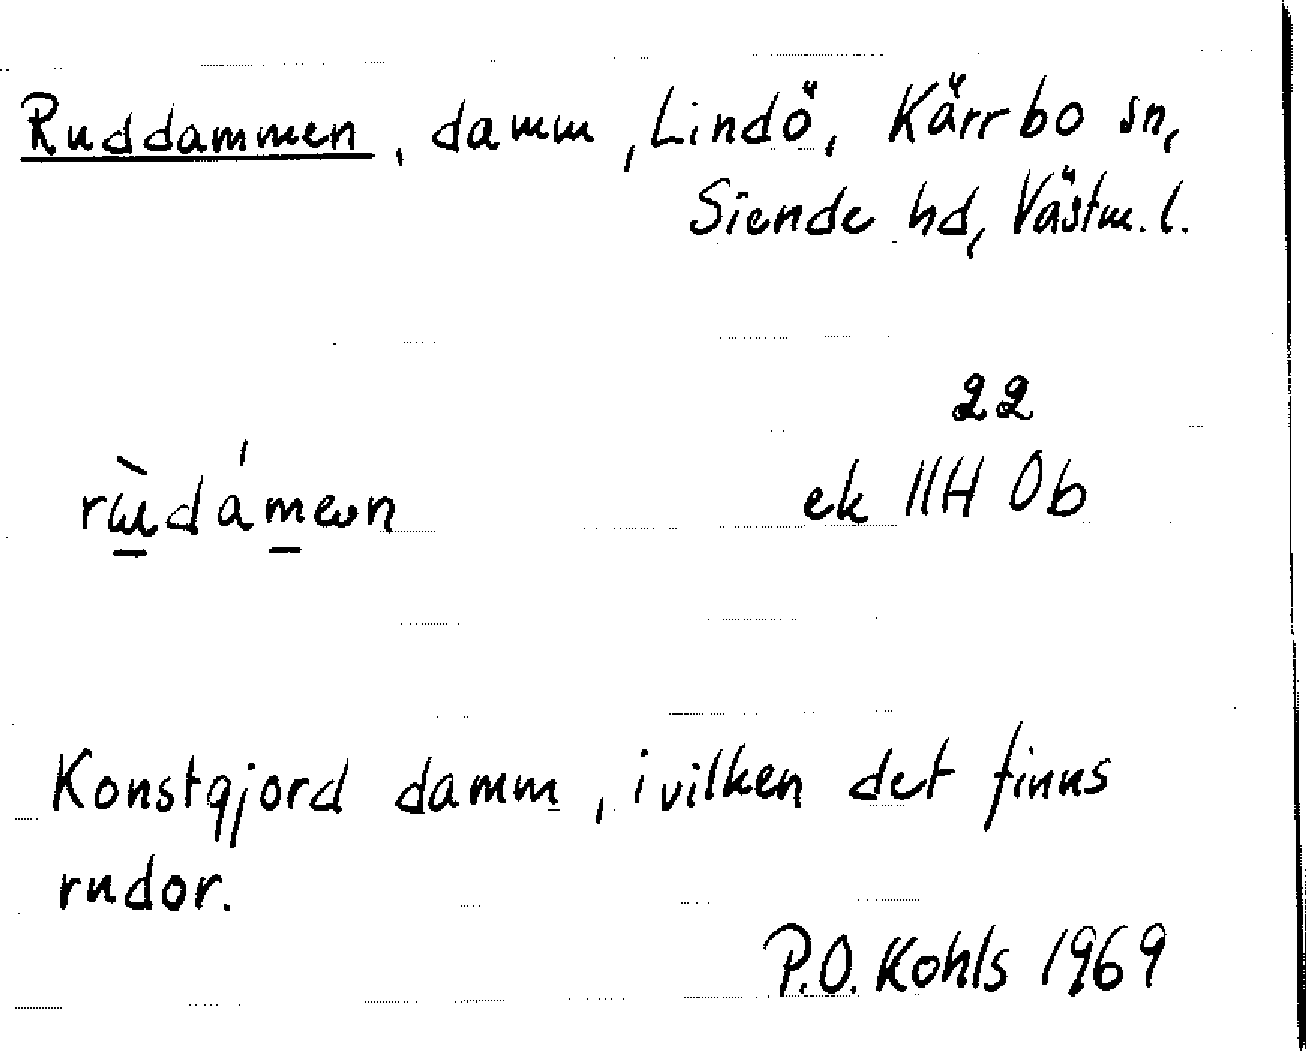 Ruddammen, damm, Lindö, Kärrbo sn,
Siende hd, Västm. l.
22
ek 11H 0b
Konstgjord damm, i vilken det finns
rudor.
P.O. Kohls 1969